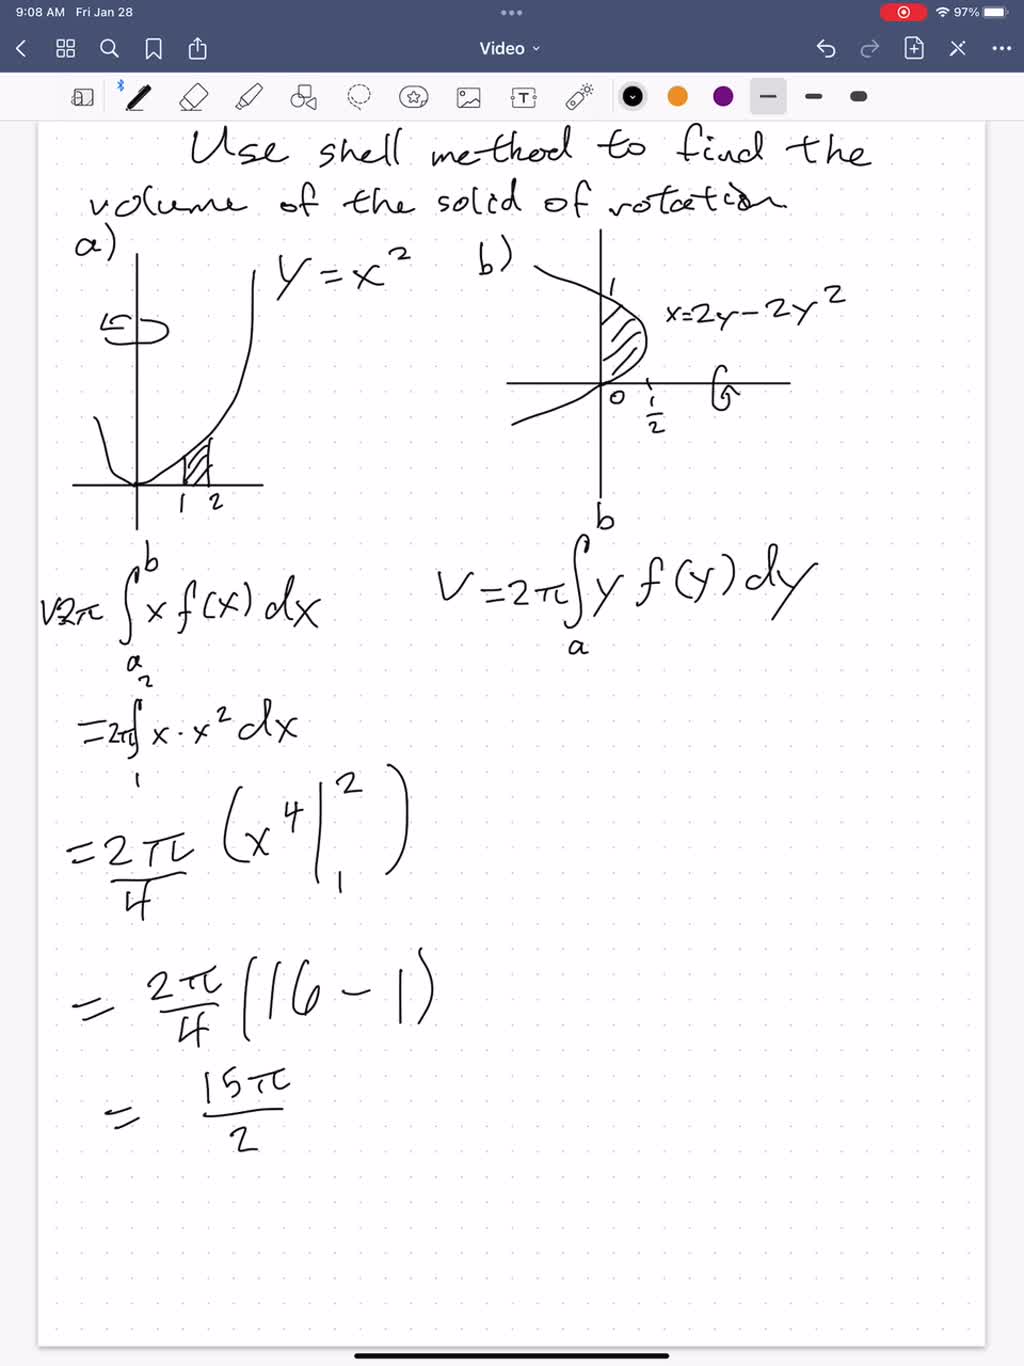 9:08 AM Fri Jan 28
97%
Video
T
Use shell method to find the
volume of the solid of rotation
a)
y = x²
1 2
b)
1
x=2y-2y²
0
1/2
V2π ∫ₐᵇ x f(x) dx
= 2π ∫₁² x · x² dx
= 2π/4 (x⁴|₁²)
= 2π/4 (16 - 1)
= 15π/2
V = 2π ∫ₐᵇ y f(y) dy